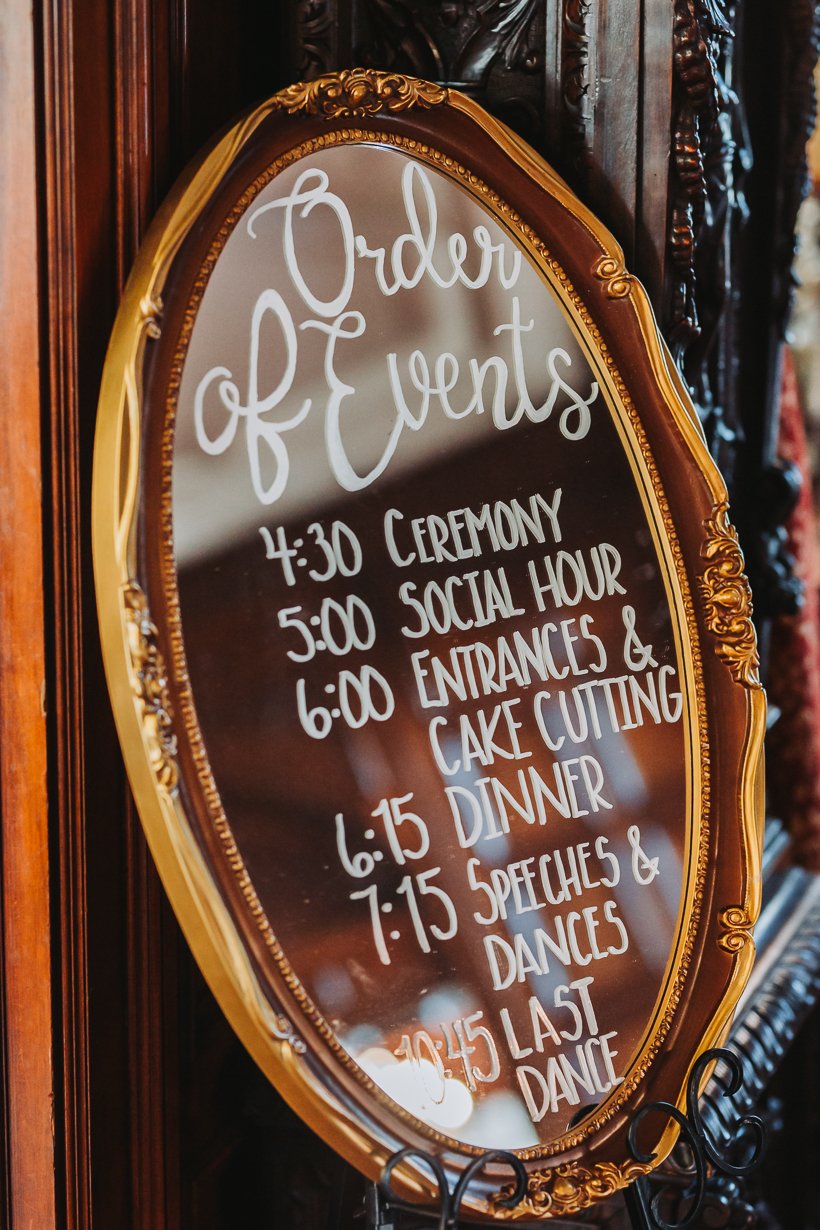 Order
of Events
4:30 CEREMONY
5:00 SOCIAL HOUR
6:00 ENTRANCES &
CAKE CUTTING
6:15 DINNER
7:15 SPEECHES &
DANCES
10:45 LAST
DANCE